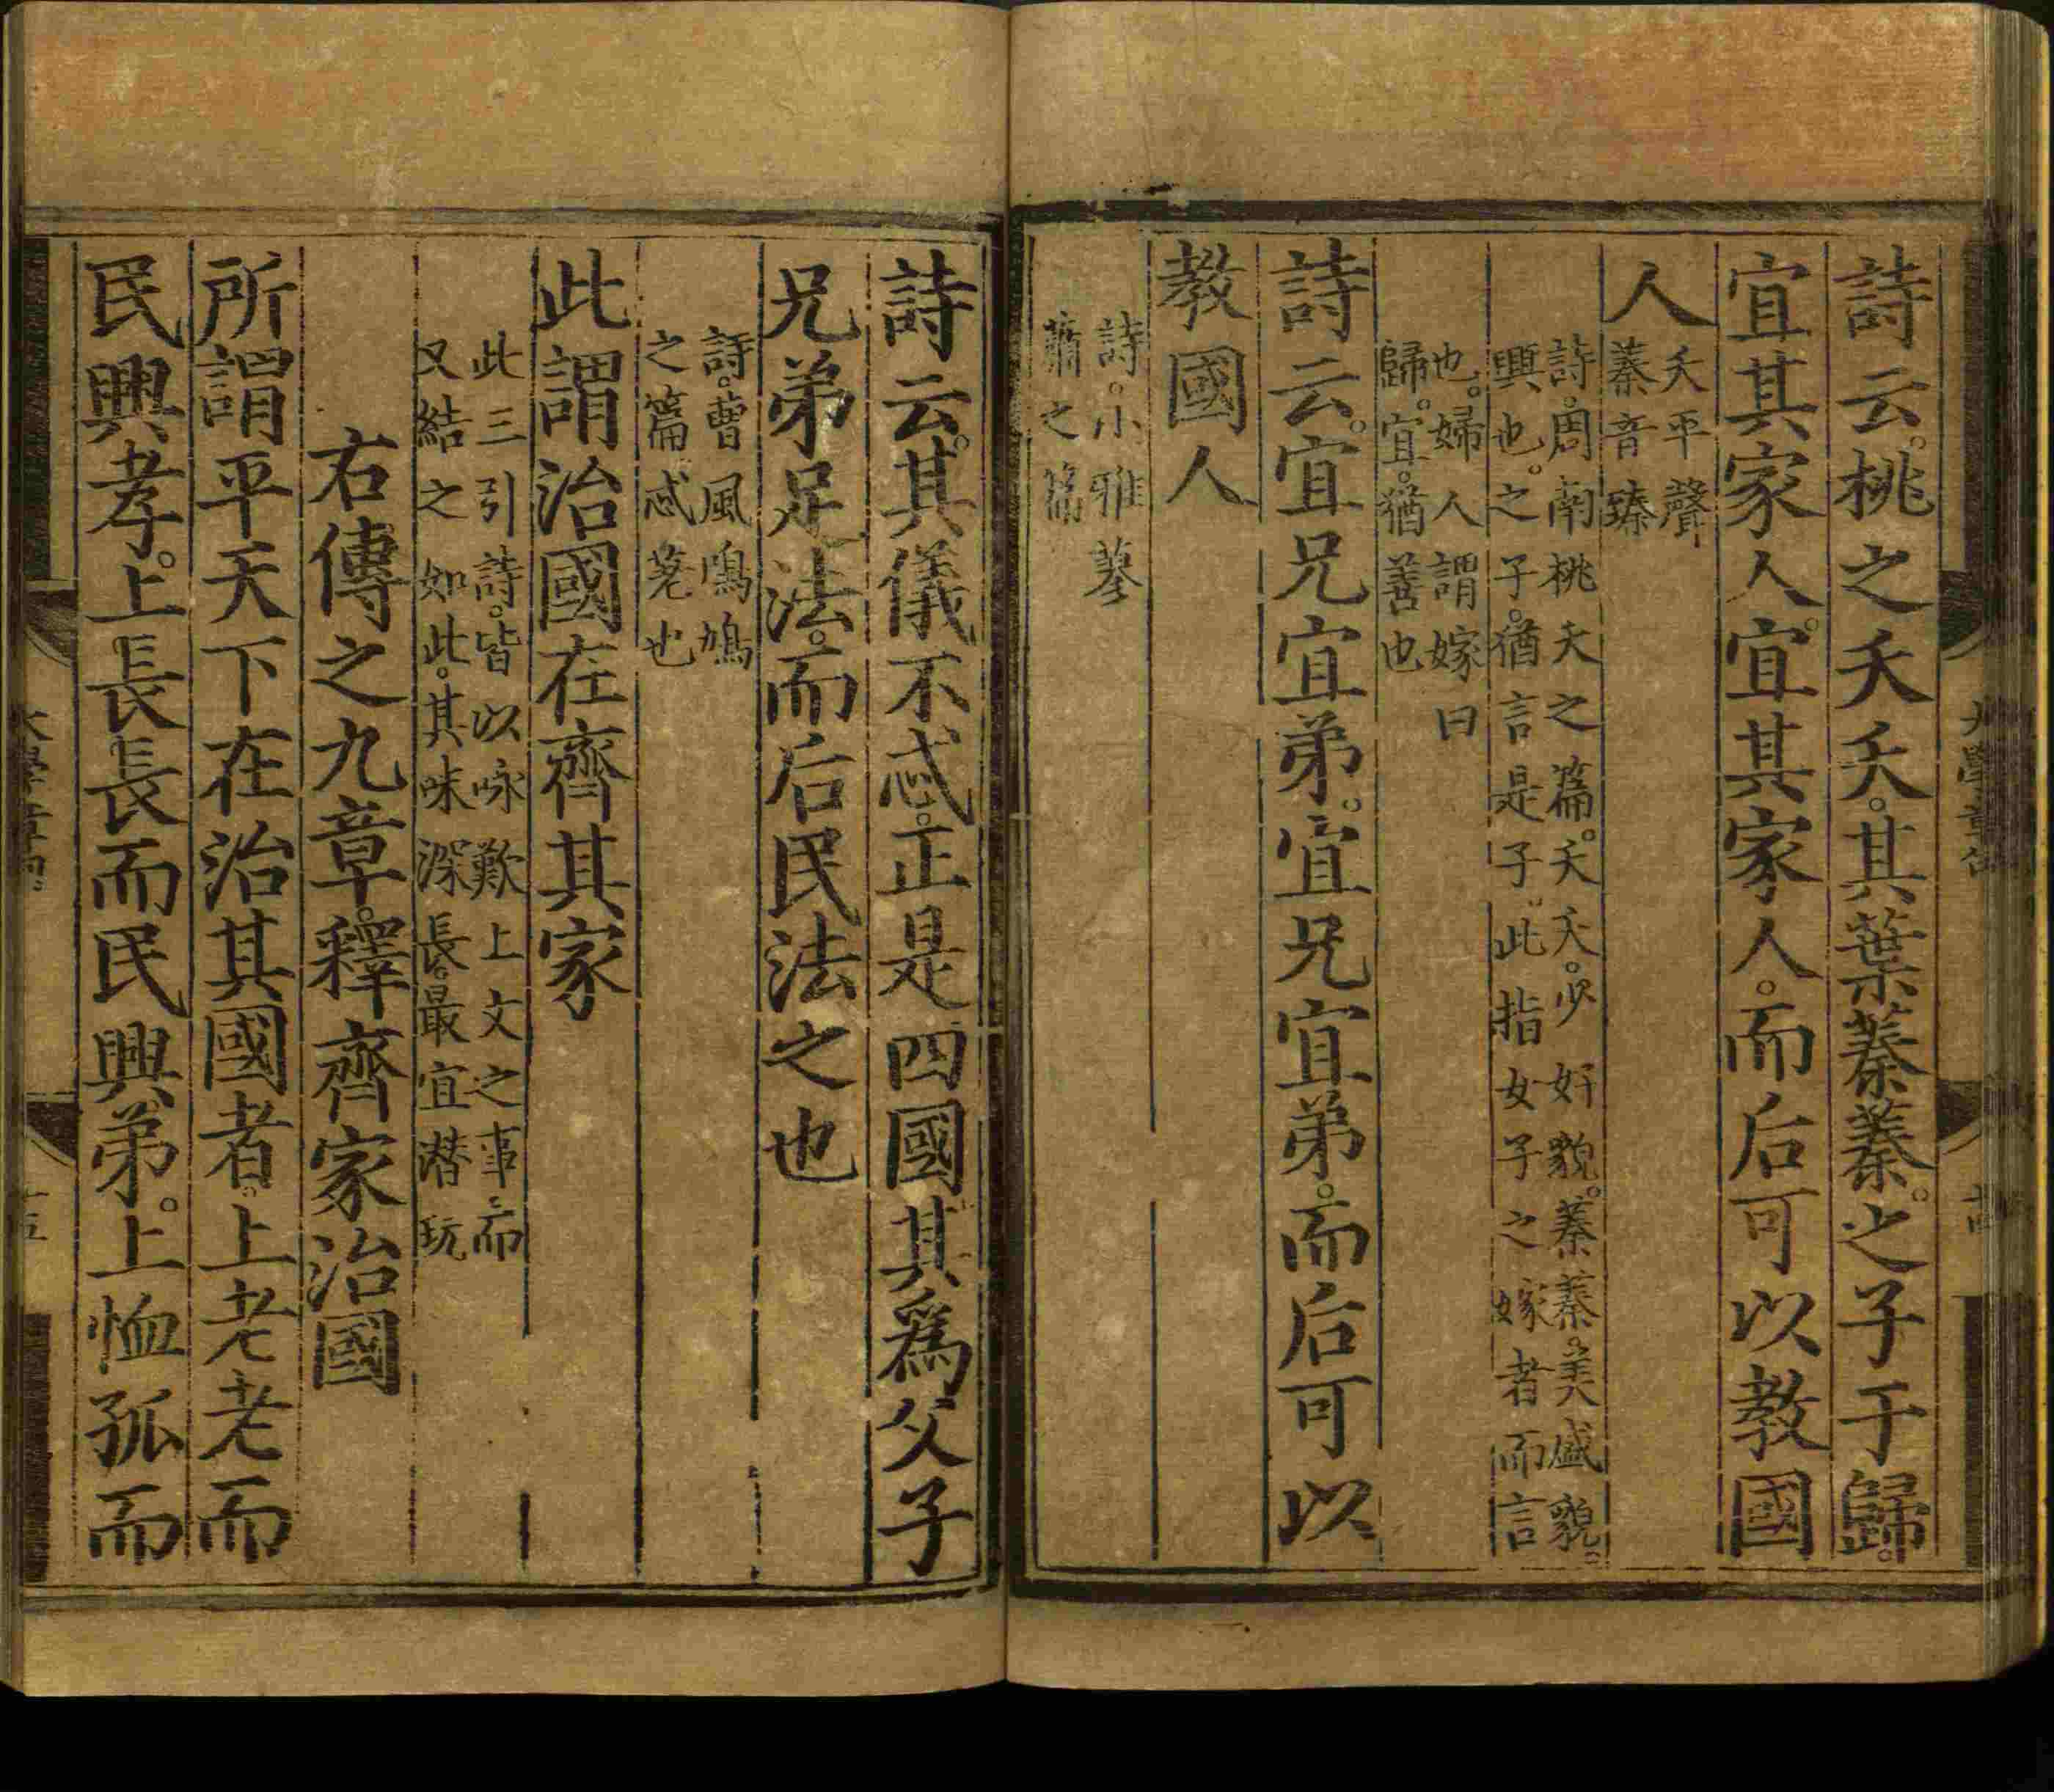 詩云。桃之夭夭。其葉蓁蓁。之子于歸。
宜其家人。宜其家人。而后可以教國
人
夭平聲
蓁音臻
詩。周南桃夭之篇。夭夭。少好貌。蓁蓁。美盛貌。
興也。之子。猶言是子。此指女子之嫁者而言
也。婦人謂嫁曰
歸。宜。猶善也
詩云。宜兄宜弟。宜兄宜弟。而后可以
教國人
詩。小雅蓼
蕭之篇
詩云。其儀不忒。正是四國。其爲父子
兄弟足法。而后民法之也
詩。曹風鳴鳩
之篇。忒差也
此謂治國在齊其家
此三引詩。皆以咏歎上文之事。而
又結之如此。其味深長。最宜潜玩
右傳之九章。釋齊家治國
所謂平天下在治其國者。上老老而
民興孝。上長長而民興弟。上恤孤而
大學章句
十五